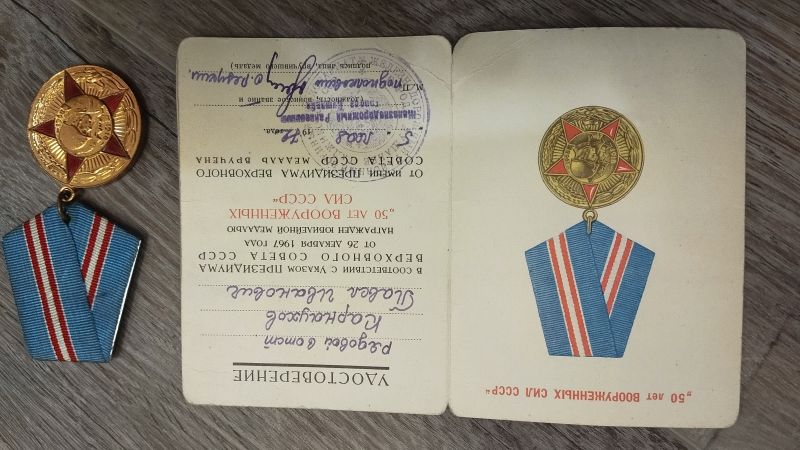 „50 лет ВООРУЖЕННЫХ СИЛ СССР“
УДОСТОВЕРЕНИЕ
Рядовой в отст
Карнаухов
Павел Иванович
В СООТВЕТСТВИИ С УКАЗОМ ПРЕЗИДИУМА
ВЕРХОВНОГО СОВЕТА СССР
ОТ 26 ДЕКАБРЯ 1967 ГОДА
НАГРАЖДЕН ЮБИЛЕЙНОЙ МЕДАЛЬЮ
„50 ЛЕТ ВООРУЖЕННЫХ
СИЛ СССР“
ОТ ИМЕНИ ПРЕЗИДИУМА ВЕРХОВНОГО
СОВЕТА СССР МЕДАЛЬ ВРУЧЕНА
5 19 года.
Железнодорожный Райвоенкомат
(должность, воинское звание и
М.П. подполковник
подпись лица, вручившего медаль)